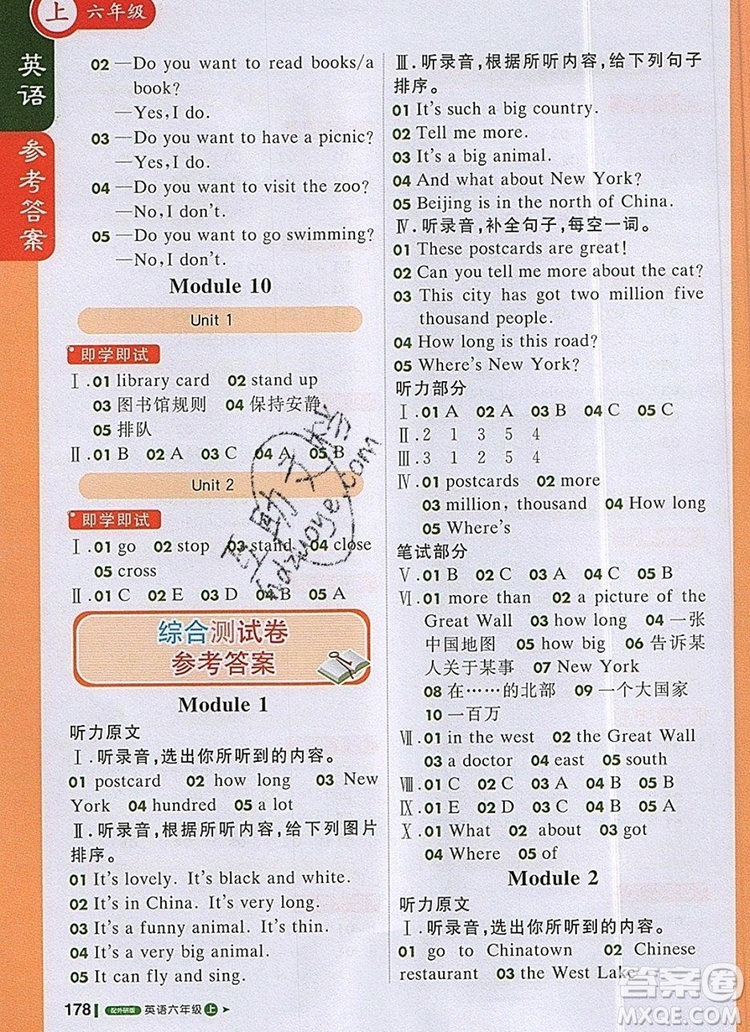 上 六年级
英语
参考答案
02 —Do you want to read books/a
book?
—Yes, I do.
03 —Do you want to have a picnic?
—Yes, I do.
04 —Do you want to visit the zoo?
—No, I don't.
05 —Do you want to go swimming?
—No, I don't.
Module 10
Unit 1
即学即试
Ⅰ. 01 library card 02 stand up
03 图书馆规则 04 保持安静
05 排队
Ⅱ. 01 B 02 A 03 C 04 A 05 B
Unit 2
即学即试
Ⅰ. 01 go 02 stop 03 stand 04 close
05 cross
Ⅱ. 01 C 02 E 03 D 04 B 05 A
综合测试卷
参考答案
Module 1
听力原文
Ⅰ. 听录音,选出你所听到的内容。
01 postcard 02 how long 03 New
York 04 hundred 05 a lot
Ⅱ. 听录音,根据所听内容,给下列图片
排序。
01 It's lovely. It's black and white.
02 It's in China. It's very long.
03 It's a funny animal. It's small.
04 It's a very big animal.
05 It can fly and sing.
178 配外研版 英语六年级 上
Ⅲ. 听录音,根据所听内容,给下列句子
排序。
01 It's such a big country.
02 Tell me more.
03 It's a big animal.
04 And what about New York?
05 Beijing is in the north of China.
Ⅳ. 听录音,补全句子,每空一词。
01 These postcards are great!
02 Can you tell me more about the cat?
03 This city has got two million five
thousand people.
04 How long is this road?
05 Where's New York?
听力部分
Ⅰ. 01 A 02 A 03 B 04 C 05 C
Ⅱ. 2 1 3 5 4
Ⅲ. 3 1 2 5 4
Ⅳ. 01 postcards 02 more
03 million, thousand 04 How long
05 Where's
笔试部分
Ⅴ. 01 B 02 B 03 C 04 B 05 A
Ⅵ. 01 more than 02 a picture of the
Great Wall 03 how long 04 一张
中国地图 05 how big 06 告诉某
人关于某事 07 New York
08 在……的北部 09 一个大国家
10 一百万
Ⅶ. 01 in the west 02 the Great Wall
03 a doctor 04 east 05 south
Ⅷ. 01 C 02 C 03 A 04 B 05 C
Ⅸ. 01 E 02 D 03 A 04 C 05 B
Ⅹ. 01 What 02 about 03 got
04 Where 05 of
Module 2
听力原文
Ⅰ. 听录音,选出你所听到的内容。
01 go to Chinatown 02 Chinese
restaurant 03 the West Lake
答案圈
MXQE.COM